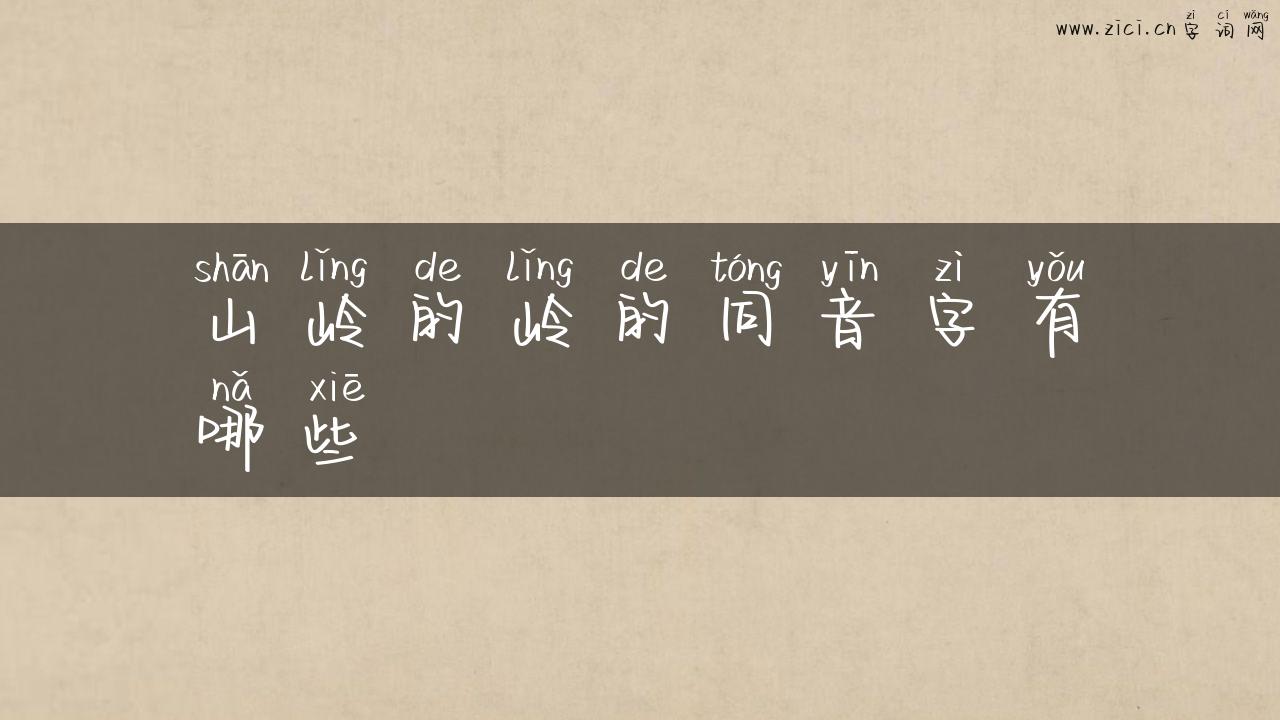 zì cí wǎng
www.zici.cn 字词网
shān lǐng de lǐng de tóng yīn zì yǒu
山岭的岭的同音字有
nǎ xiē
哪些